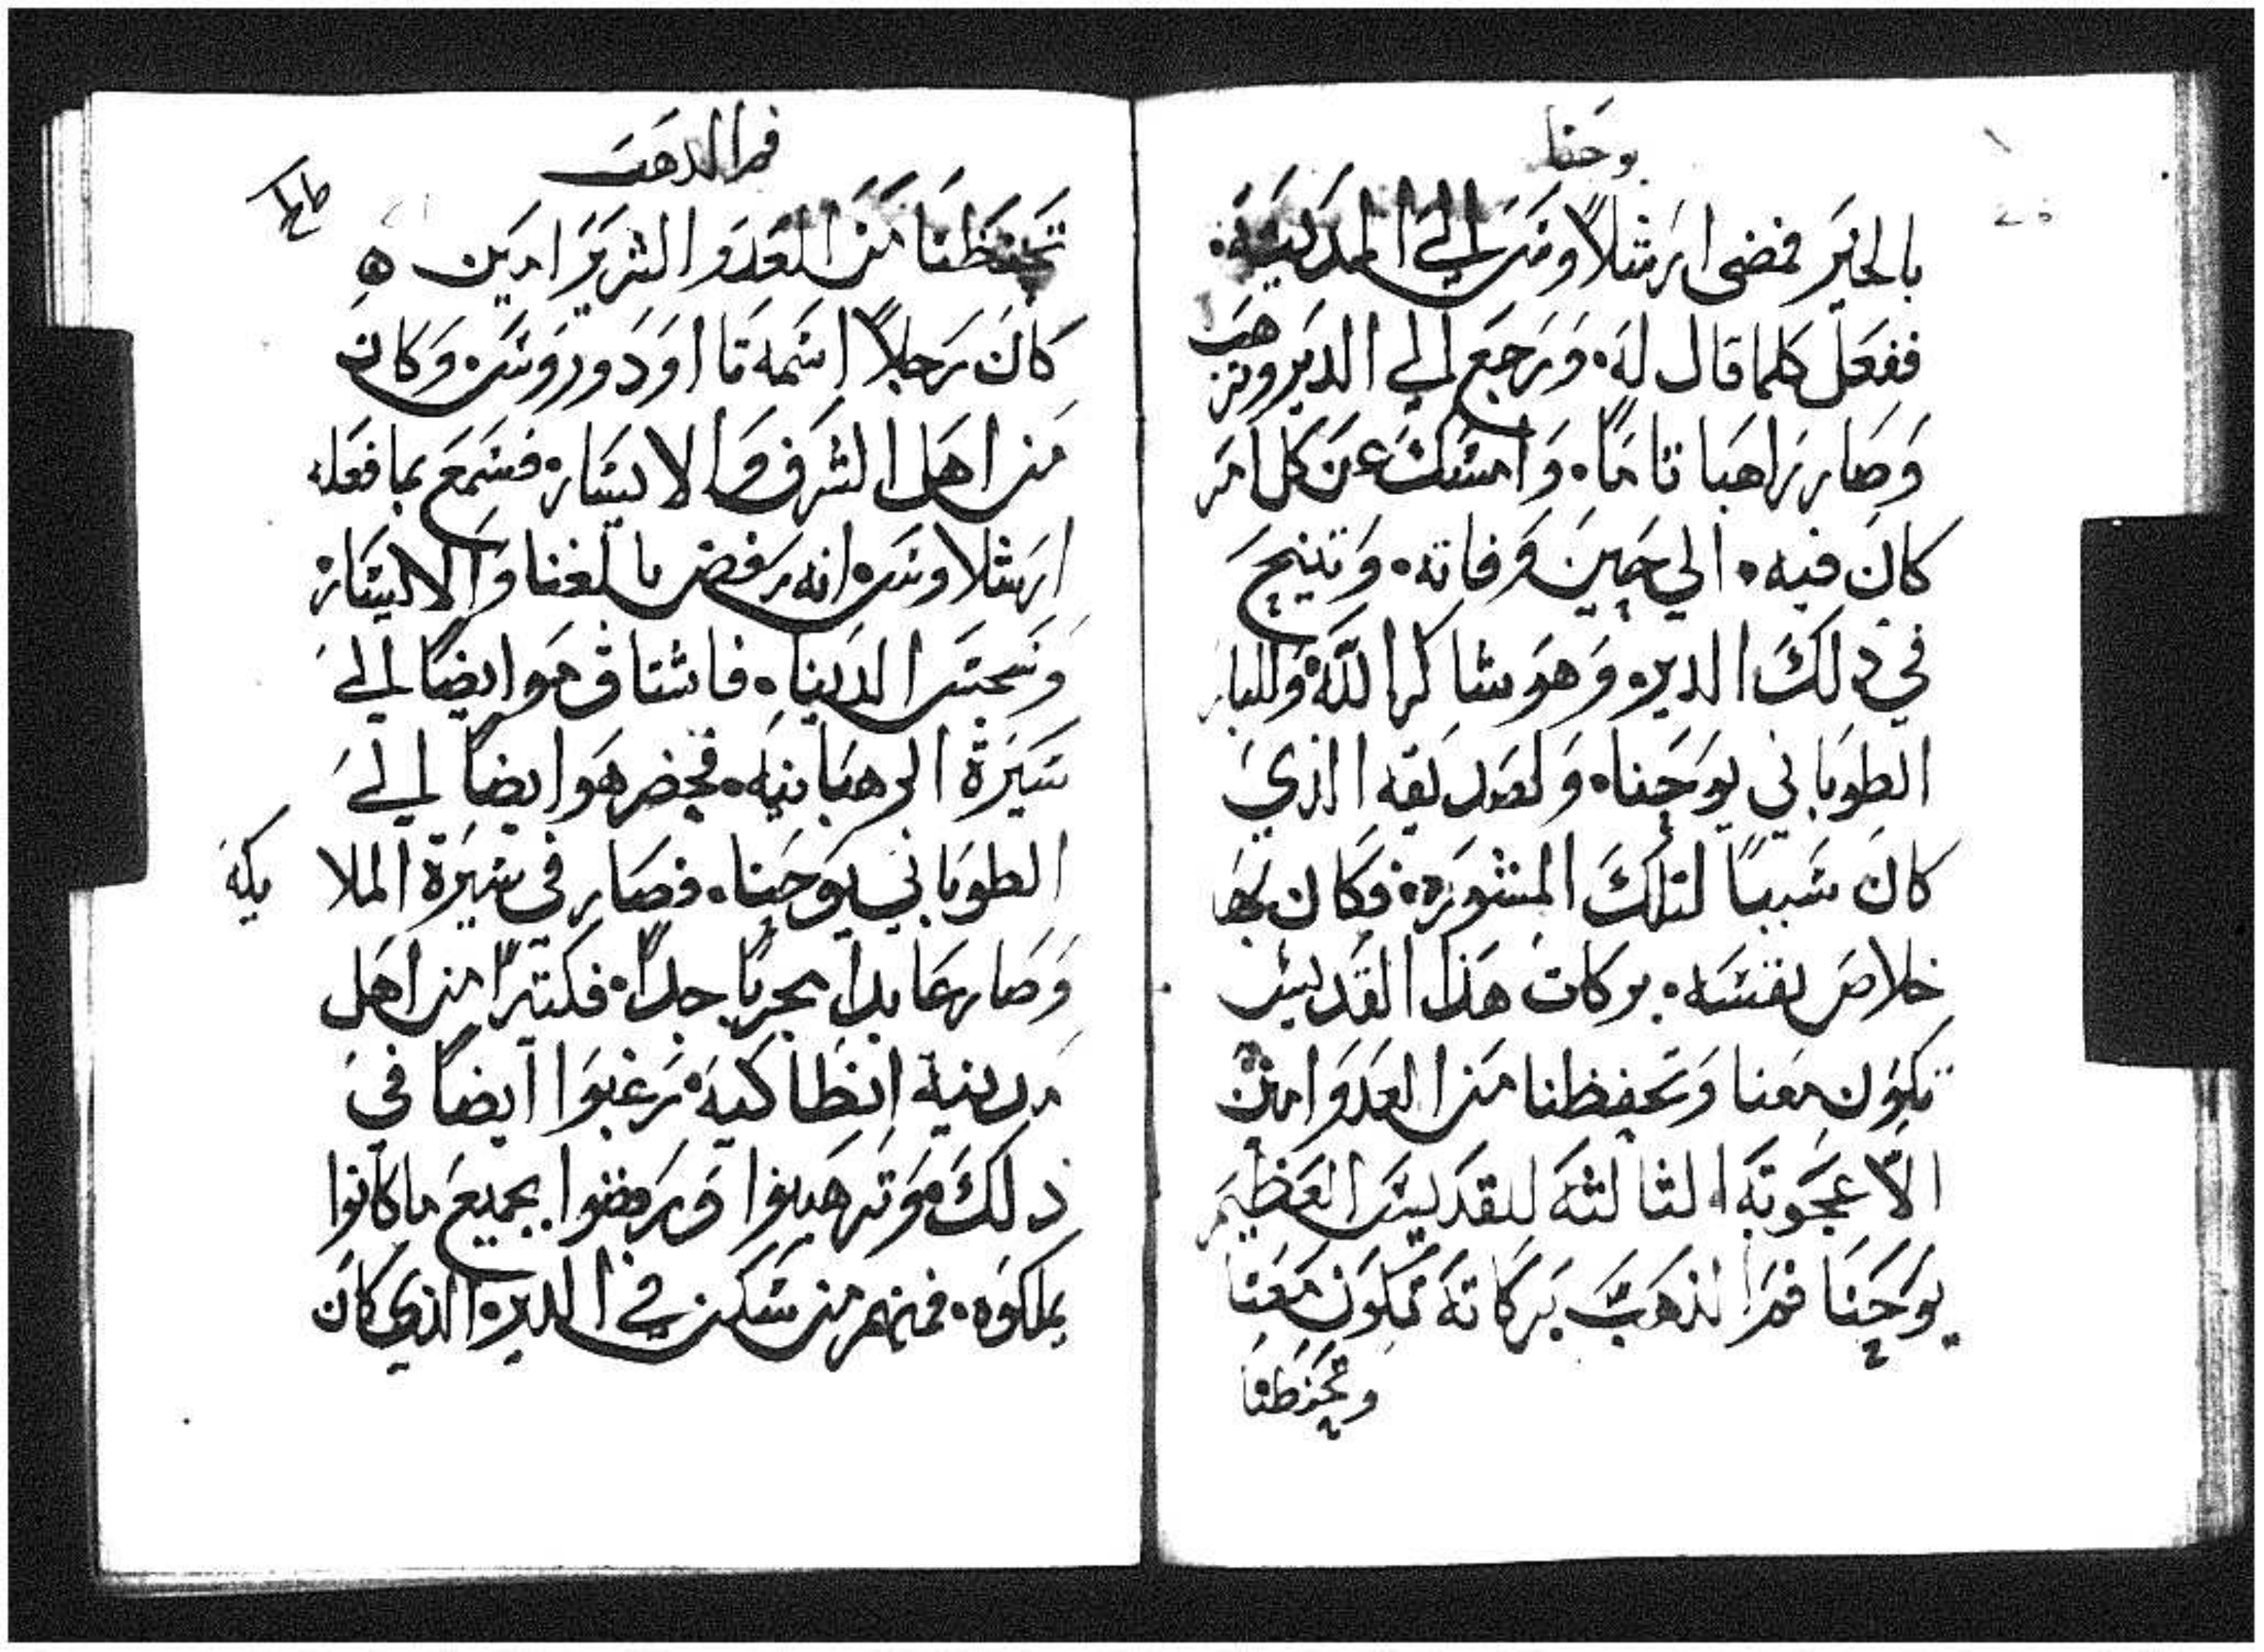 يوحنا
بالخير فمضى ارشلاوس الي المدينة
ففعل كلما قال له. ورجع الي الدير وترهب
وصار راهبا تاما. وامسك عن كل امر
كان فيه. الي حين وفاته. وتنيح
في ذلك الدير. وهو شاكرا لله وللبار
الطوباني يوحنا. ولصديقه الذي
كان سببا لتلك المشوره. فكان بها
خلاص نفسه. بركات هذا القديس
تكون معنا وتحفظنا من العدو امين
الاعجوبه الثالثه للقديس العظيم
يوحنا فم الذهب بركاته تكون معنا
وتحفظنا
فم الدهب
تحفظنا من العدو الشرير امين ه
كان رجلا اسمه تااودوروس. وكان
من اهل الشرف والايسار. فسمع بما فعله
ارشلاوس. انه رفض بالغنا والايسار
وسجس الدينا. فاشتاق هو ايضا الي
سيرة الرهبانيه. فحضر هو ايضا الي
الطوباني يوحنا. فصار في سيرة الملا
يكه
وصار عابدا مجربا جدا. فكتيرا من اهل
مدينة انطاكيه رغبوا ايضا في
ذلك وترهبوا ورفضوا بجميع ما كانوا
يملكوه. فمنهم من سكن في الدير الذي كان